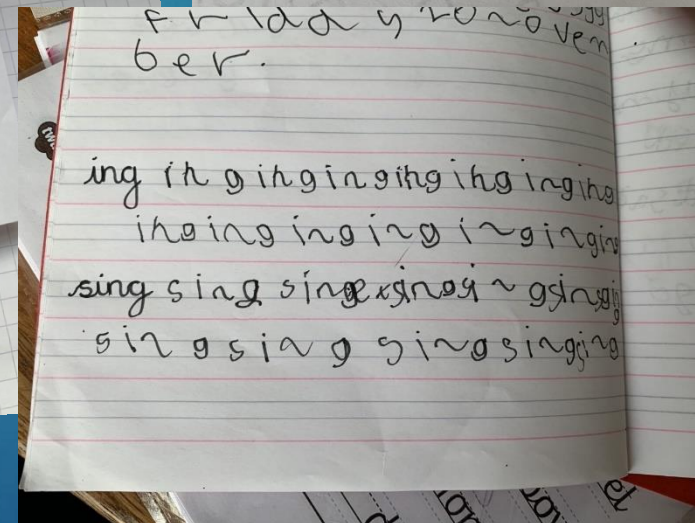 Friday 20 Noven
ber.
ing ing ing ing ing ing ing ing
ing ing ing ing ing ing ing
sing sing sing sing sing sing
sing sing sing sing sing